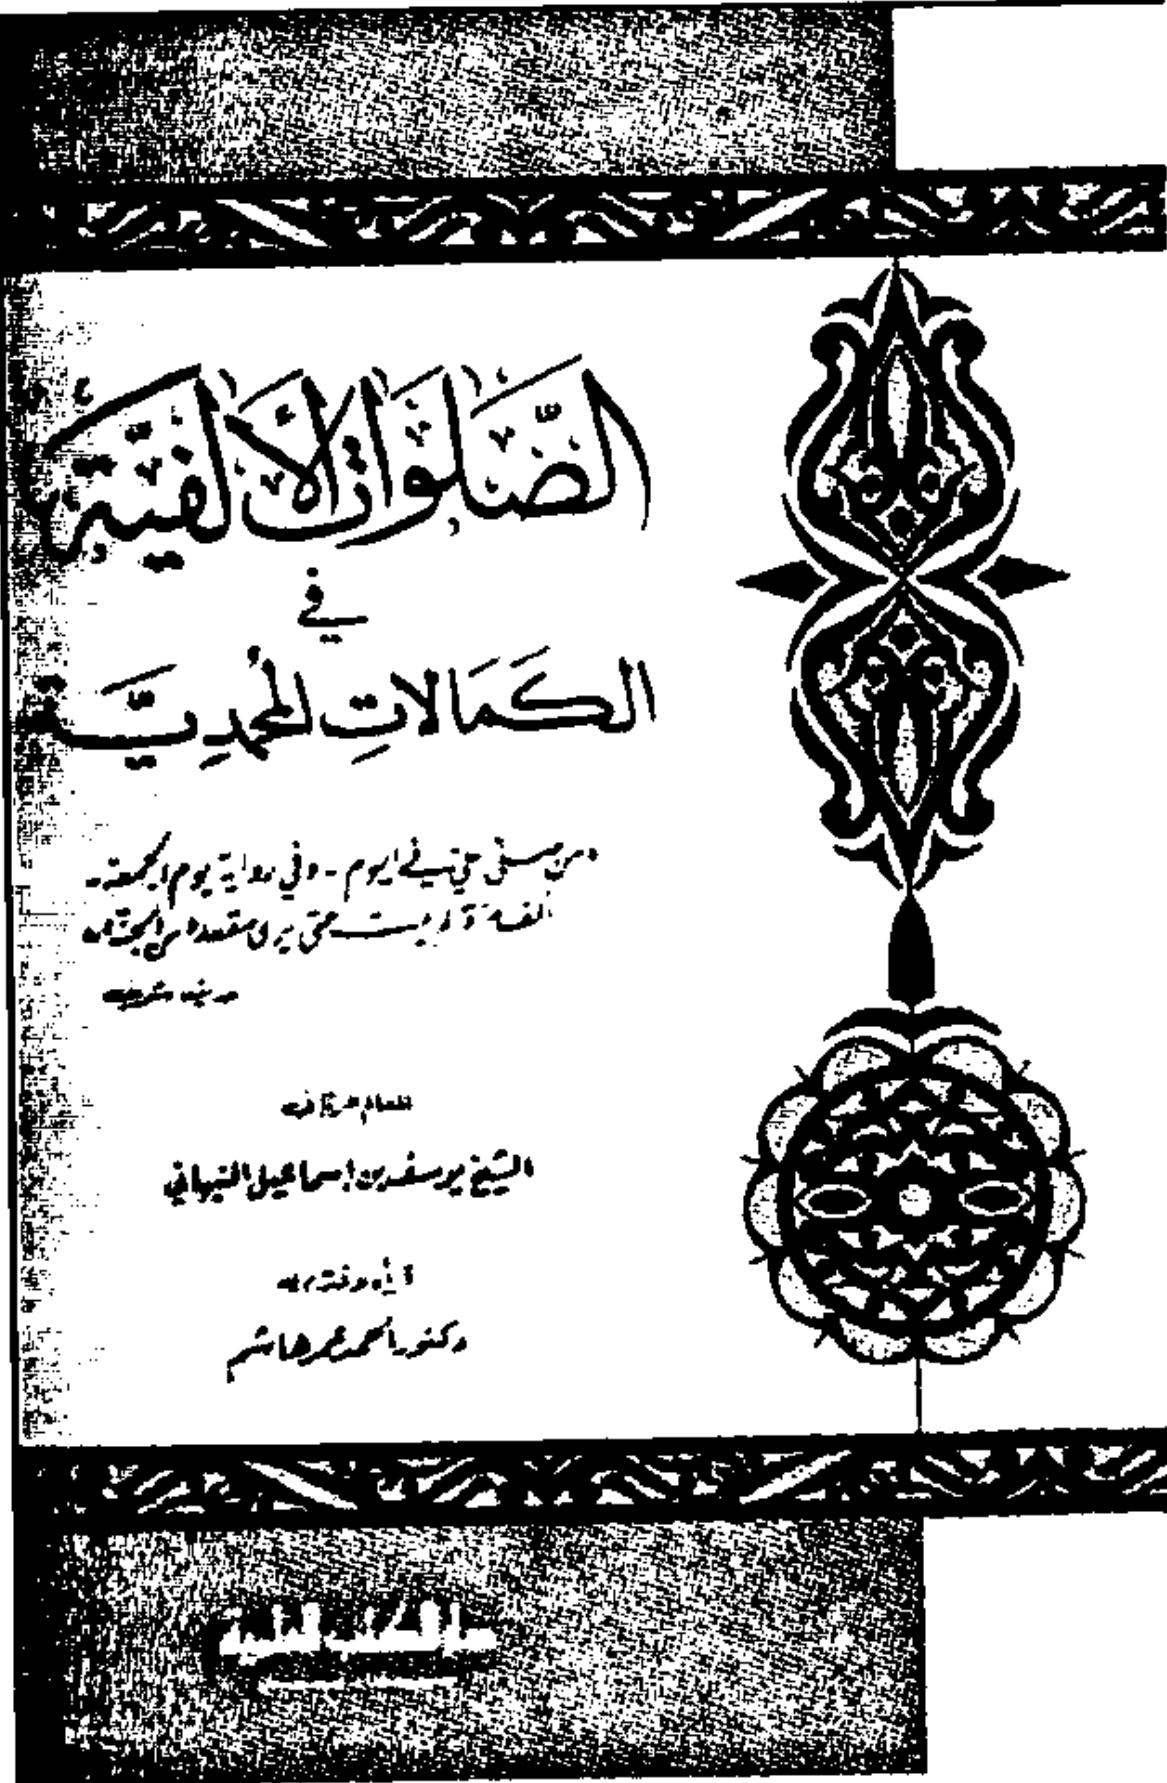 الصَّلَوَاتُ الأَلْفِيَّةُ
في
الكَمَالاتِ المُحمدِيَّة
من صلى علي في اليوم - وفي رواية يوم الجمعة -
ألف مرة لم يمت حتى يرى مقعده من الجنة
حديث شريف
للعالم العارف
الشيخ يوسف بن إسماعيل النبهاني
دكتور أحمد عمر هاشم